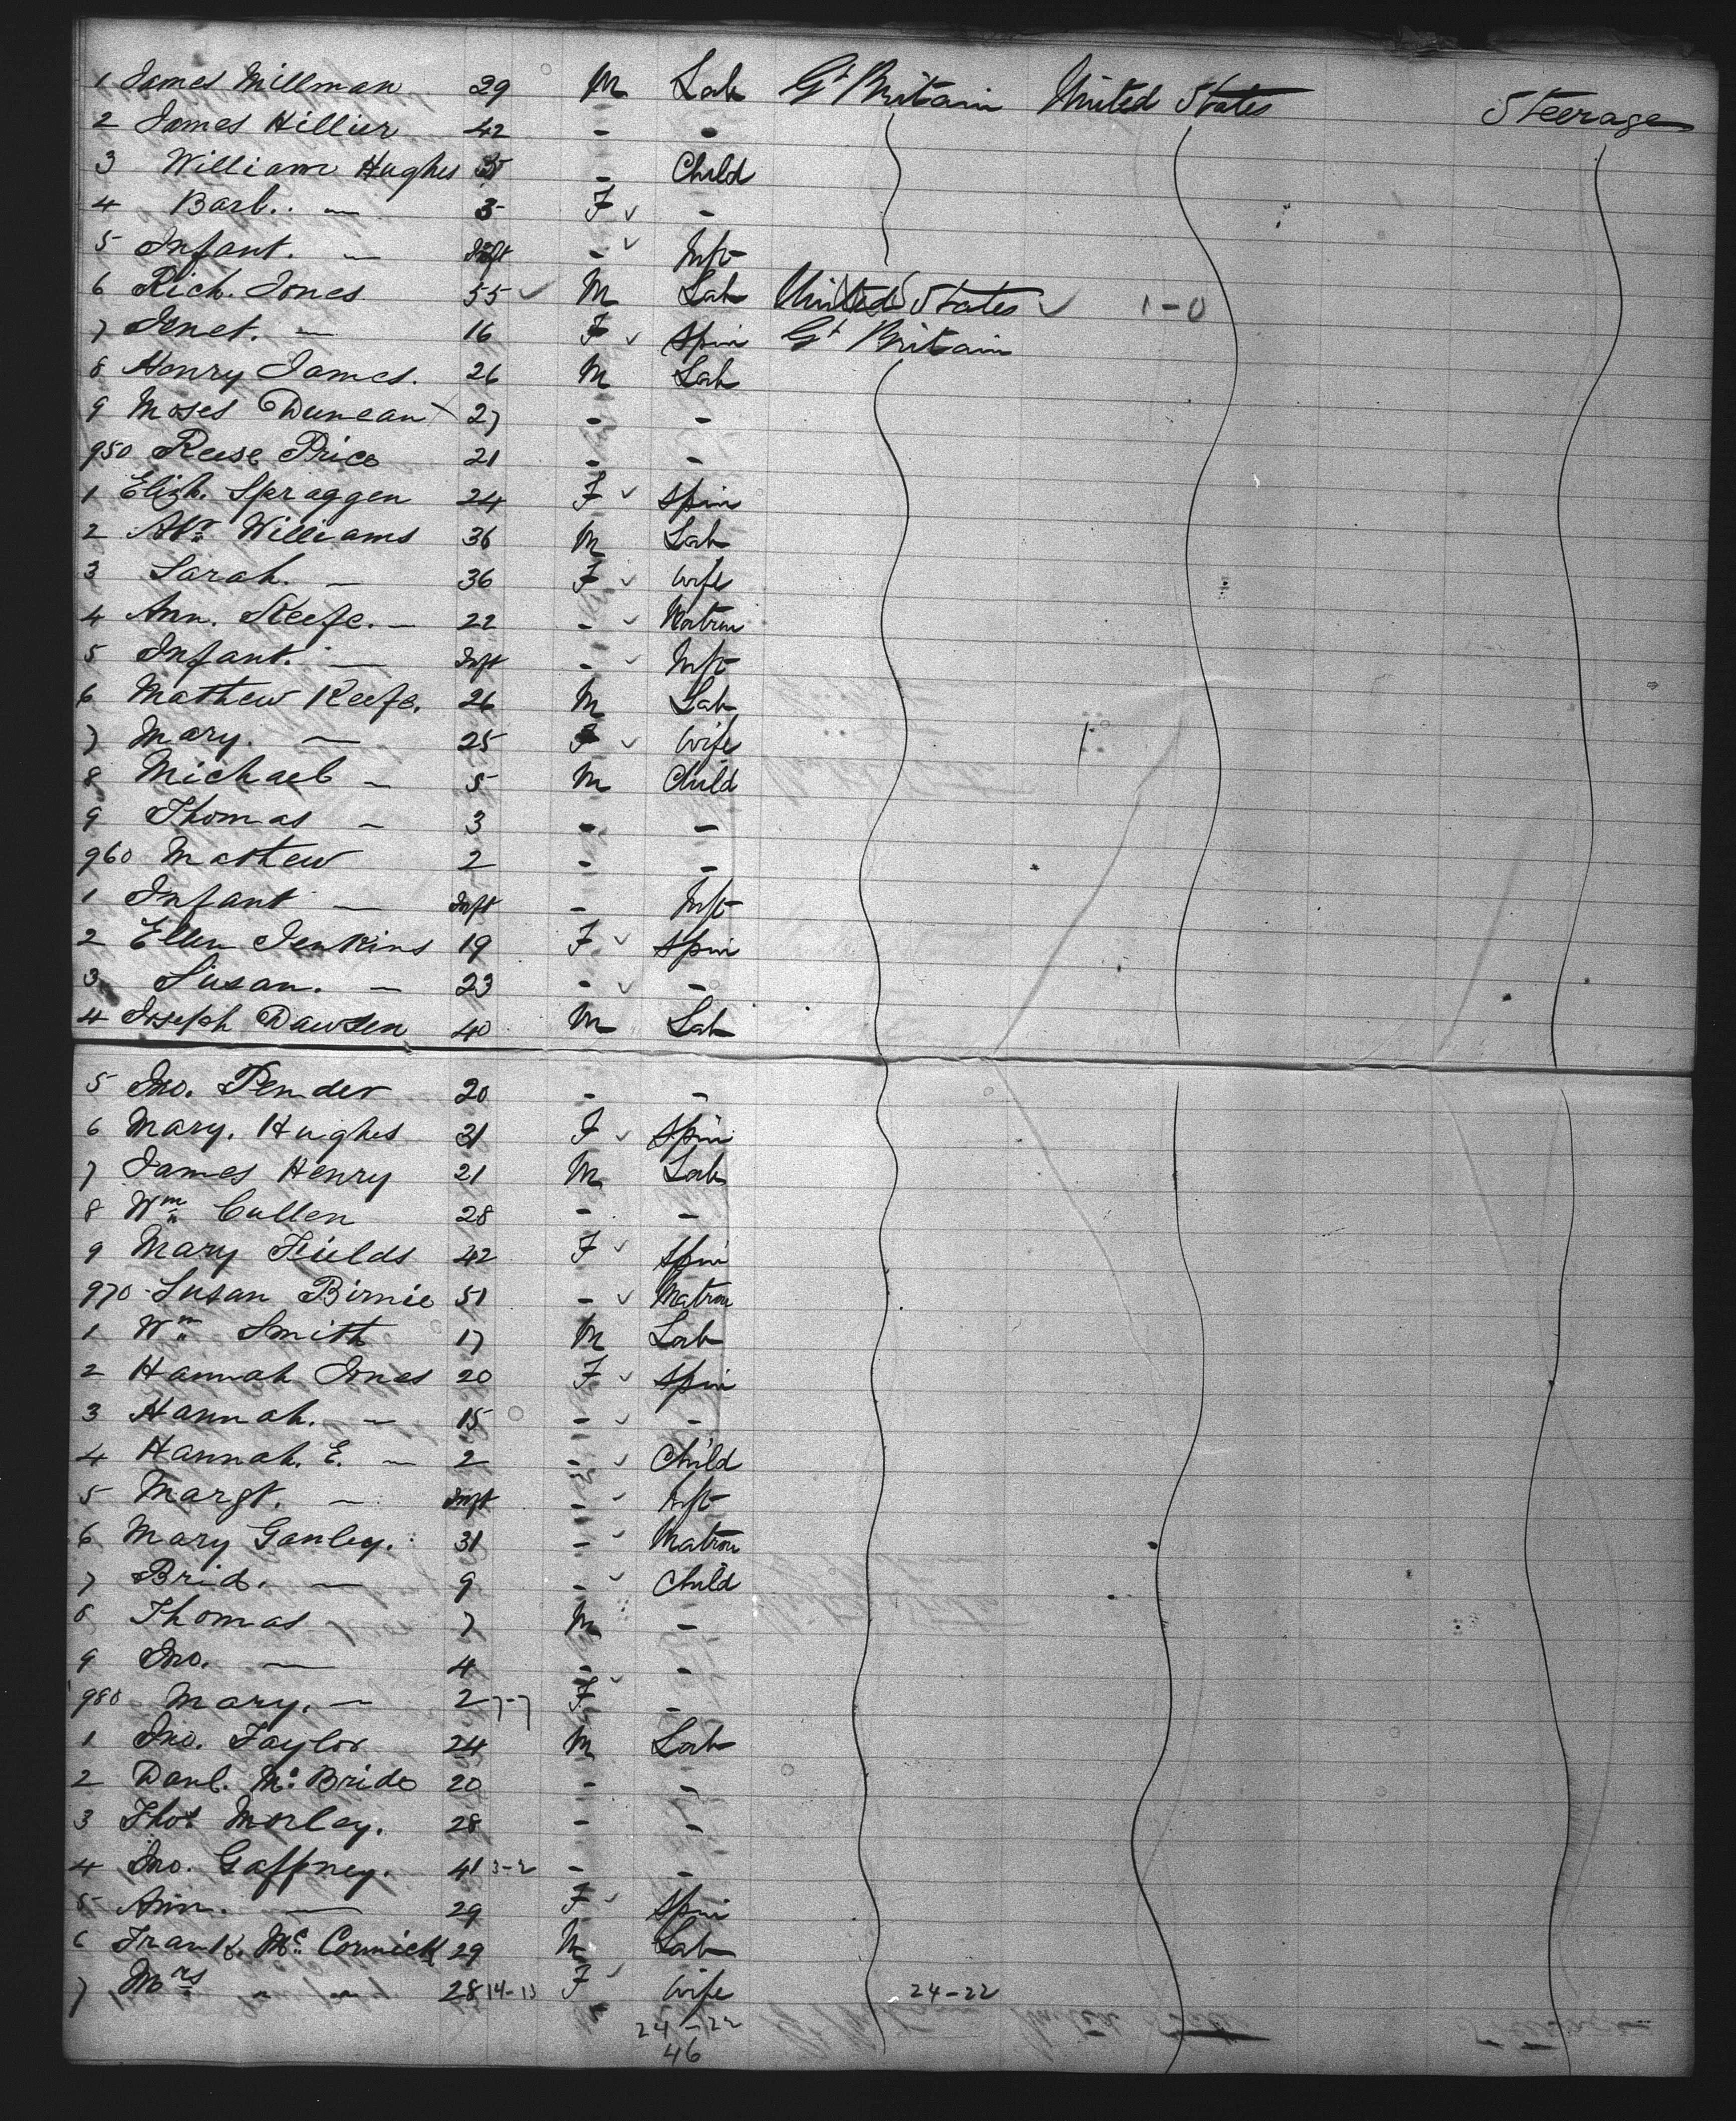 1 James Millman 29 M Lab Gt Britain United States Steerage
2 James Hillier 42 - -
3 William Hughes - Child
4 Barb. — 3 F ✓ -
5 Infant. — Inft - ✓ Inft
6 Rich. Jones 55 ✓ M Lab United States ✓ 1-0
7 Jenet. — 16 F ✓ Spin Gt Britain
8 Henry James. 26 M Lab
9 Moses Duncan 27 - -
950 Reese Price 21 - -
1 Elizh. Spraggen 24 F ✓ Spin
2 Williams 36 M Lab
3 Sarah. — 36 F ✓ Wife
4 Ann. Keefe. - 22 - ✓ Matron
5 Infant. — Inft - ✓ Inft
6 Mathew Keefe. 26 M Lab
7 Mary. — 25 F ✓ Wife
8 Michael - 5 M Child
9 Thomas - 3 - -
960 Mathew 2 - -
1 Infant — Inft - Inft
2 Ellen Jenkins 19 F ✓ Spin
3 Susan. — 23 - ✓ -
4 Joseph Dawsen 40 M Lab
5 Jno. Pender 20 - -
6 Mary. Hughes 31 F ✓ Spin
7 James Henry 21 M Lab
8 Wm Cullen 28 - -
9 Mary Fields 42 F ✓ Spin
970 Susan Birnie 51 - ✓ Matron
1 Wm Smith 17 M Lab
2 Hannah Jones 20 F ✓ Spin
3 Hannah. — 15 - ✓ -
4 Hannah. E. — 2 - ✓ Child
5 Margt. — Inft - ✓ Inft
6 Mary Ganley. 31 - ✓ Matron
7 Brid. — 9 - ✓ Child
8 Thomas 7 M -
9 Jno. — 4 - -
980 Mary. — 2 7-7 F ✓ -
1 Jno. Taylor 24 M Lab
2 Danl. McBride 20 - -
3 Thos Morley. 28 - -
4 Jno. Gaffney. 41 3-2 - -
5 Ann. — 29 F ✓ Spin
6 Frank. McCormick 29 M Lab
7 Mrs " " 28 14-13 F ✓ Wife 24-22
24-22
46